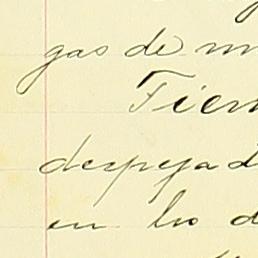 gas de m
Tiem
despejad
en lo d